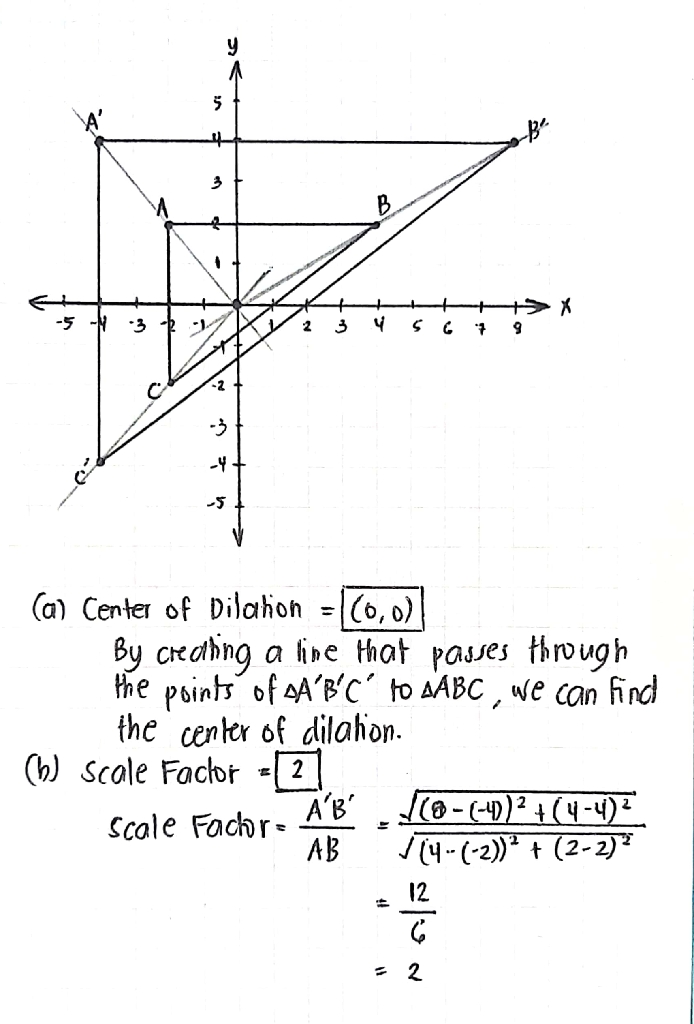 y
5
A'
4
B'
3
A
B
2
1
x
-5 -4 -3 -2 -1 1 2 3 4 5 6 7 8
-1
C
-2
-3
C'
-4
-5
(a) Center of Dilation = (0,0)
By creating a line that passes through
the points of ΔA'B'C' to ΔABC, we can find
the center of dilation.
(b) Scale Factor = 2
Scale Factor = A'B' / AB = √(8-(-4))² + (4-4)² / √(4-(-2))² + (2-2)²
= 12 / 6
= 2